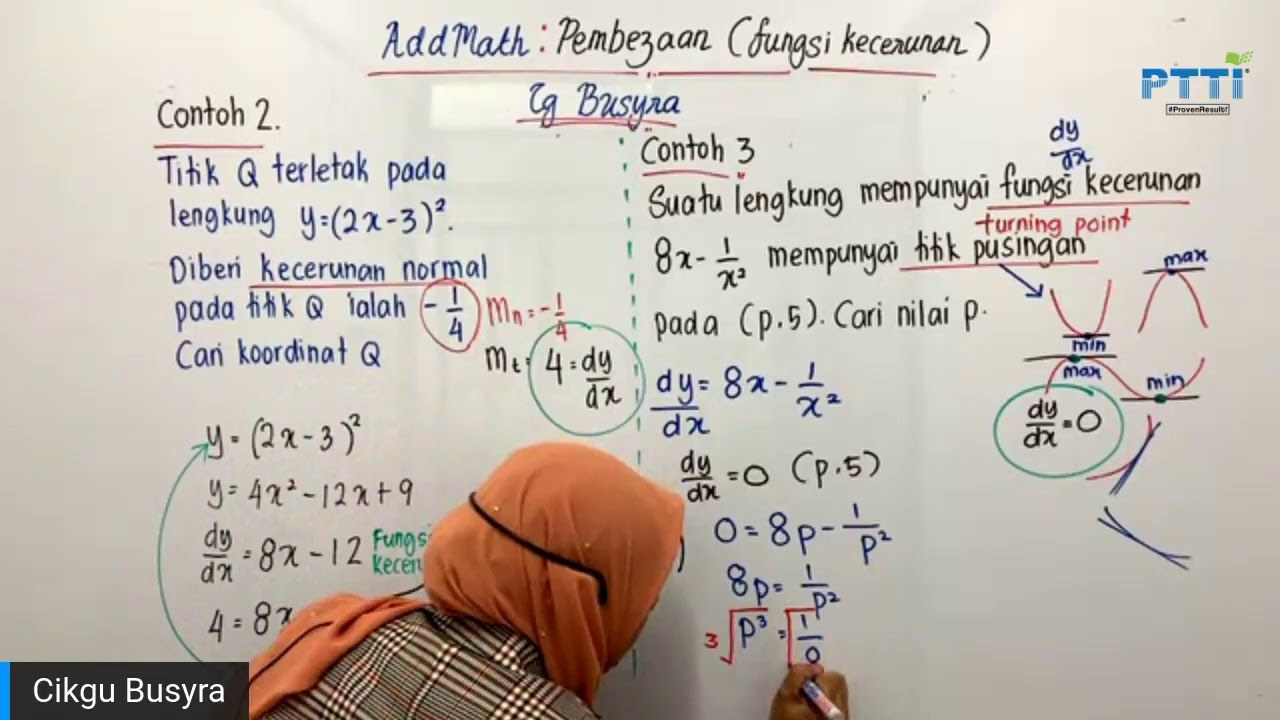 AddMath : Pembezaan (fungsi kecerunan)
Cg Busyra
PTTI
#ProvenResult!
Contoh 2.
Titik Q terletak pada
lengkung y=(2x-3)².
Diberi kecerunan normal
pada titik Q ialah -1/4
Cari koordinat Q
mn = -1/4
mt = 4 = dy/dx
y = (2x-3)²
y = 4x² -12x+9
dy/dx = 8x - 12
4 = 8x
Contoh 3
dy/dx
Suatu lengkung mempunyai fungsi kecerunan
turning point
8x - 1/x² mempunyai titik pusingan
pada (p.5). Cari nilai p.
dy/dx = 8x - 1/x²
dy/dx = 0 (p.5)
0 = 8p - 1/p²
8p = 1/p²
3√p³ = √1/
max
min
max
min
dy/dx = 0
Cikgu Busyra